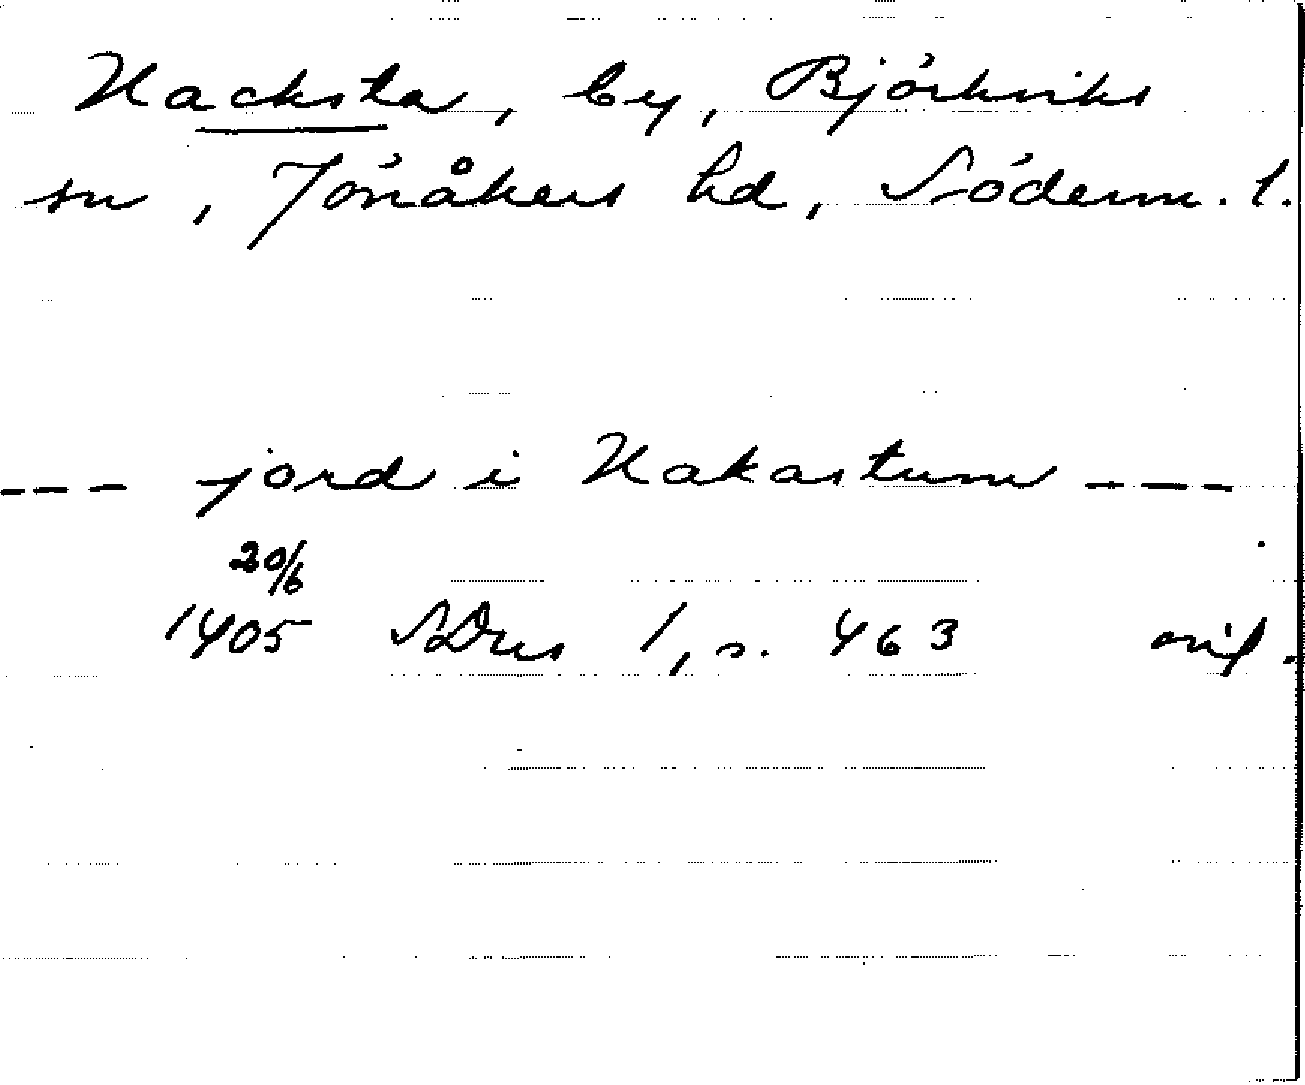 Nacksta, by, Björkviks
sn, Jönåkers hd, Söderm. l.
--- jord i Nakastum ---
20/6
1405 SDns 1, s. 463 orig.